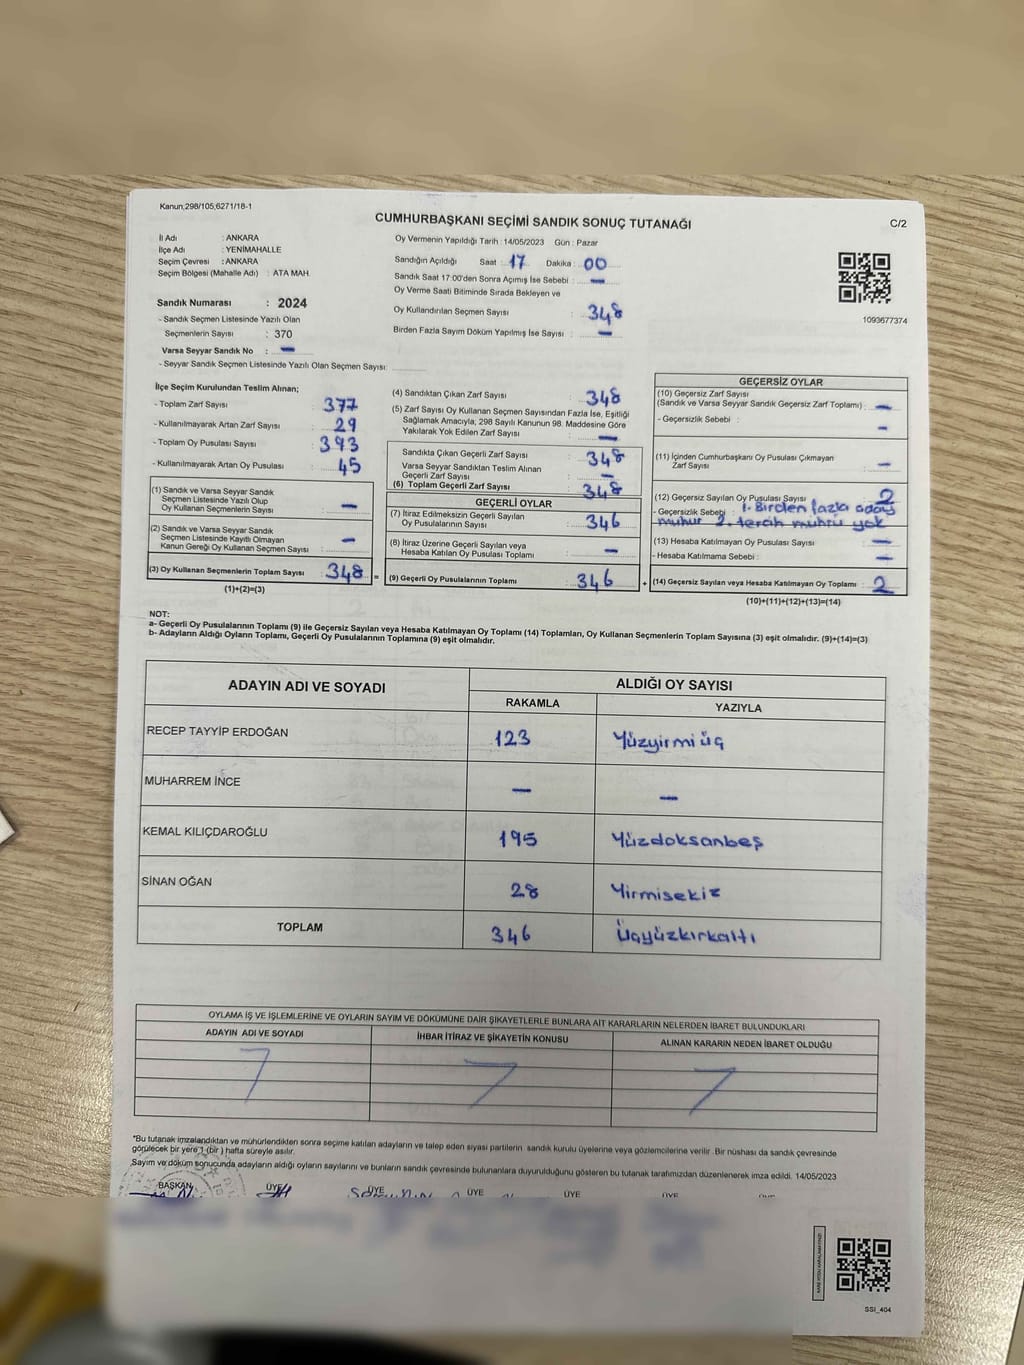 Kanun,298/105,6271/18-1
CUMHURBAŞKANI SEÇİMİ SANDIK SONUÇ TUTANAĞI
C/2
İl Adı : ANKARA
İlçe Adı : YENİMAHALLE
Seçim Çevresi : ANKARA
Seçim Bölgesi (Mahalle Adı) : ATA MAH.
Sandık Numarası : 2024
- Sandık Seçmen Listesinde Yazılı Olan
Seçmenlerin Sayısı : 370
Varsa Seyyar Sandık No : —
- Seyyar Sandık Seçmen Listesinde Yazılı Olan Seçmen Sayısı:
Oy Vermenin Yapıldığı Tarih : 14/05/2023 Gün : Pazar
Sandığın Açıldığı Saat : 17 Dakika : 00
Sandık Saat 17:00'den Sonra Açımış İse Sebebi : —
Oy Verme Saati Bitiminde Sırada Bekleyen ve
Oy Kullandırılan Seçmen Sayısı : 348
Birden Fazla Sayım Döküm Yapılmış İse Sayısı : —
1093677374
İlçe Seçim Kurulundan Teslim Alınan;
- Toplam Zarf Sayısı : 377
- Kullanılmayarak Artan Zarf Sayısı : 29
- Toplam Oy Pusulası Sayısı : 393
- Kullanılmayarak Artan Oy Pusulası : 45
(1) Sandık ve Varsa Seyyar Sandık
Seçmen Listesinde Yazılı Olup
Oy Kullanan Seçmenlerin Sayısı : —
(2) Sandık ve Varsa Seyyar Sandık
Seçmen Listesinde Kayıtlı Olmayan
Kanun Gereği Oy Kullanan Seçmen Sayısı : —
(3) Oy Kullanan Seçmenlerin Toplam Sayısı : 348 =
(1)+(2)=(3)
(4) Sandıktan Çıkan Zarf Sayısı : 348
(5) Zarf Sayısı Oy Kullanan Seçmen Sayısından Fazla İse, Eşitliği
Sağlamak Amacıyla, 298 Sayılı Kanunun 98. Maddesine Göre
Yakılarak Yok Edilen Zarf Sayısı : —
Sandıkta Çıkan Geçerli Zarf Sayısı : 348
Varsa Seyyar Sandıktan Teslim Alınan
Geçerli Zarf Sayısı : —
(6) Toplam Geçerli Zarf Sayısı : 348
GEÇERLİ OYLAR
(7) İtiraz Edilmeksizin Geçerli Sayılan
Oy Pusulalarının Sayısı : 346
(8) İtiraz Üzerine Geçerli Sayılan veya
Hesaba Katılan Oy Pusulası Toplamı : —
(9) Geçerli Oy Pusulalarının Toplamı : 346 +
GEÇERSİZ OYLAR
(10) Geçersiz Zarf Sayısı
(Sandık ve Varsa Seyyar Sandık Geçersiz Zarf Toplamı) : —
- Geçersizlik Sebebi : —
(11) İçinden Cumhurbaşkanı Oy Pusulası Çıkmayan
Zarf Sayısı : —
(12) Geçersiz Sayılan Oy Pusulası Sayısı : 2
- Geçersizlik Sebebi : 1. Birden fazla aday
mühür 2. tercih mührü yok
(13) Hesaba Katılmayan Oy Pusulası Sayısı : —
- Hesaba Katılmama Sebebi : —
(14) Geçersiz Sayılan veya Hesaba Katılmayan Oy Toplamı : 2
(10)+(11)+(12)+(13)=(14)
NOT:
a- Geçerli Oy Pusulalarının Toplamı (9) ile Geçersiz Sayılan veya Hesaba Katılmayan Oy Toplamı (14) Toplamları, Oy Kullanan Seçmenlerin Toplam Sayısına (3) eşit olmalıdır. (9)+(14)=(3)
b- Adayların Aldığı Oyların Toplamı, Geçerli Oy Pusulalarının Toplamına (9) eşit olmalıdır.
ADAYIN ADI VE SOYADI ALDIĞI OY SAYISI
RAKAMLA YAZIYLA
RECEP TAYYİP ERDOĞAN 123 Yüzyirmiüç
MUHARREM İNCE — —
KEMAL KILIÇDAROĞLU 195 Yüzdoksanbeş
SİNAN OĞAN 28 Yirmisekiz
TOPLAM 346 Üçyüzkırkaltı
OYLAMA İŞ VE İŞLEMLERİNE VE OYLARIN SAYIM VE DÖKÜMÜNE DAİR ŞİKAYETLERLE BUNLARA AİT KARARLARIN NELERDEN İBARET BULUNDUKLARI
ADAYIN ADI VE SOYADI İHBAR İTİRAZ VE ŞİKAYETİN KONUSU ALINAN KARARIN NEDEN İBARET OLDUĞU
*Bu tutanak imzalandıktan ve mühürlendikten sonra seçime katılan adayların ve talep eden siyasi partilerin sandık kurulu üyelerine veya gözlemcilerine verilir. Bir nüshası da sandık çevresinde
görülecek bir yere 1 (bir) hafta süreyle asılır.
Sayım ve döküm sonucunda adayların aldığı oyların sayılarını ve bunların sandık çevresinde bulunanlara duyurulduğunu gösteren bu tutanak tarafımızdan düzenlenerek imza edildi. 14/05/2023
BAŞKAN ÜYE ÜYE ÜYE ÜYE ÜYE ÜYE
SSI_404